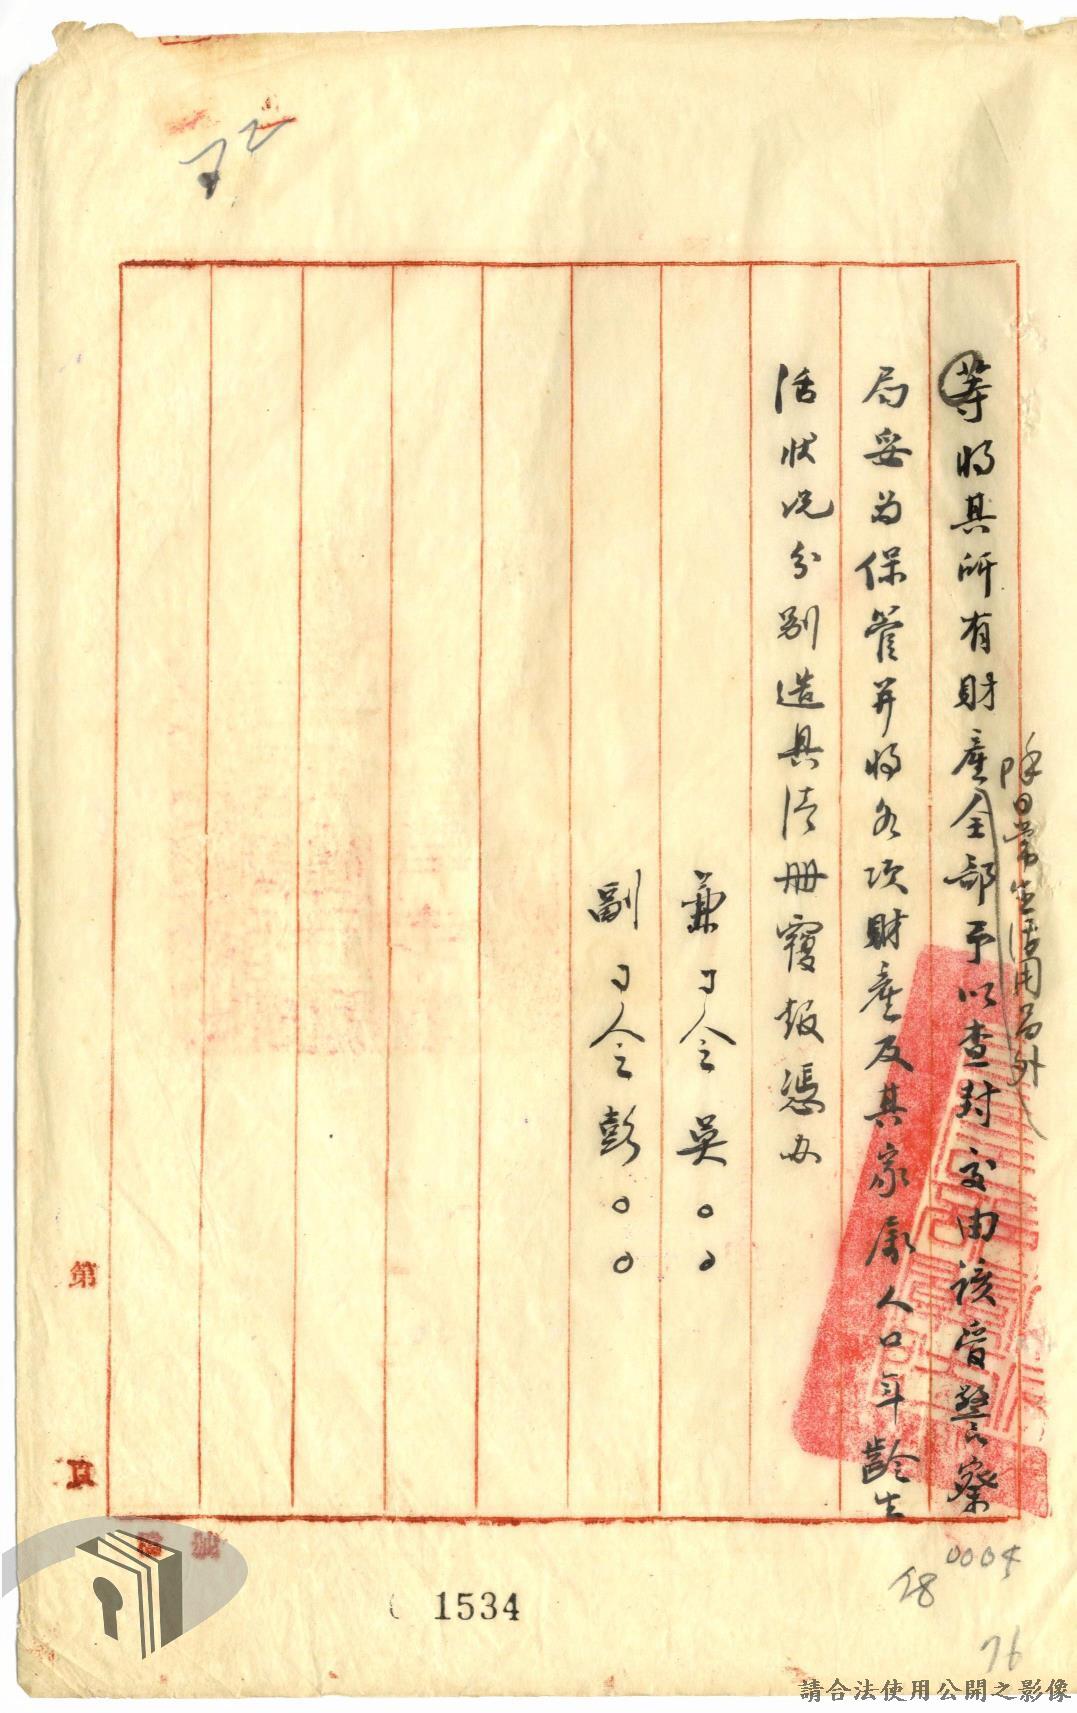 等將其所有財產全部予以查封交由該管警察
除日常生活用品外
局妥為保管并將各項財產及其家屬人口年齡生
活狀況分別造具清册覆報憑办
兼司令吳○○
副司令彭○○
第
頁
0004
28
76
1534
請合法使用公開之影像